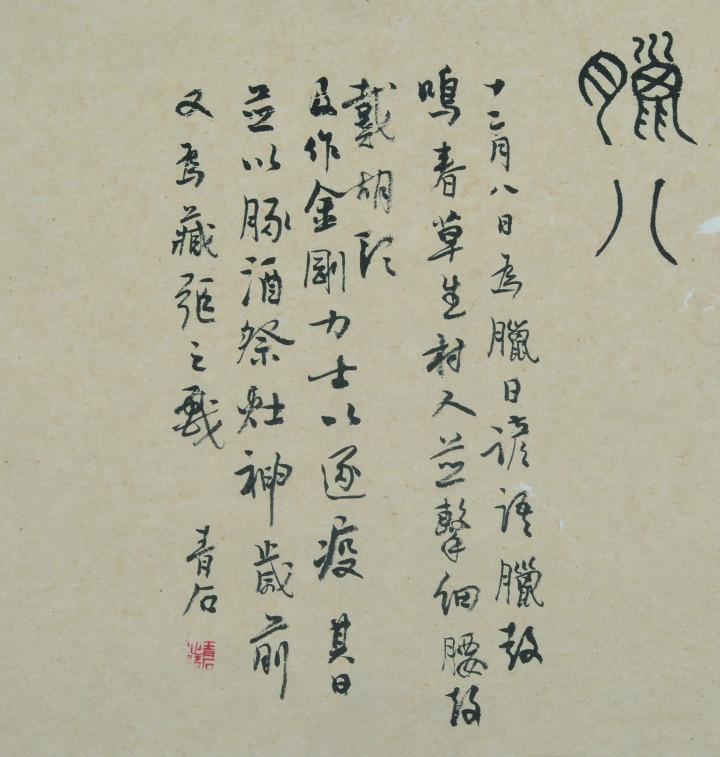 臘八
十二月八日為臘日諺語臘鼓
鳴春草生村人並擊細腰鼓
戴胡頭
及作金剛力士以逐疫其日
並以豚酒祭灶神歲前
又為藏彄之戲
青石